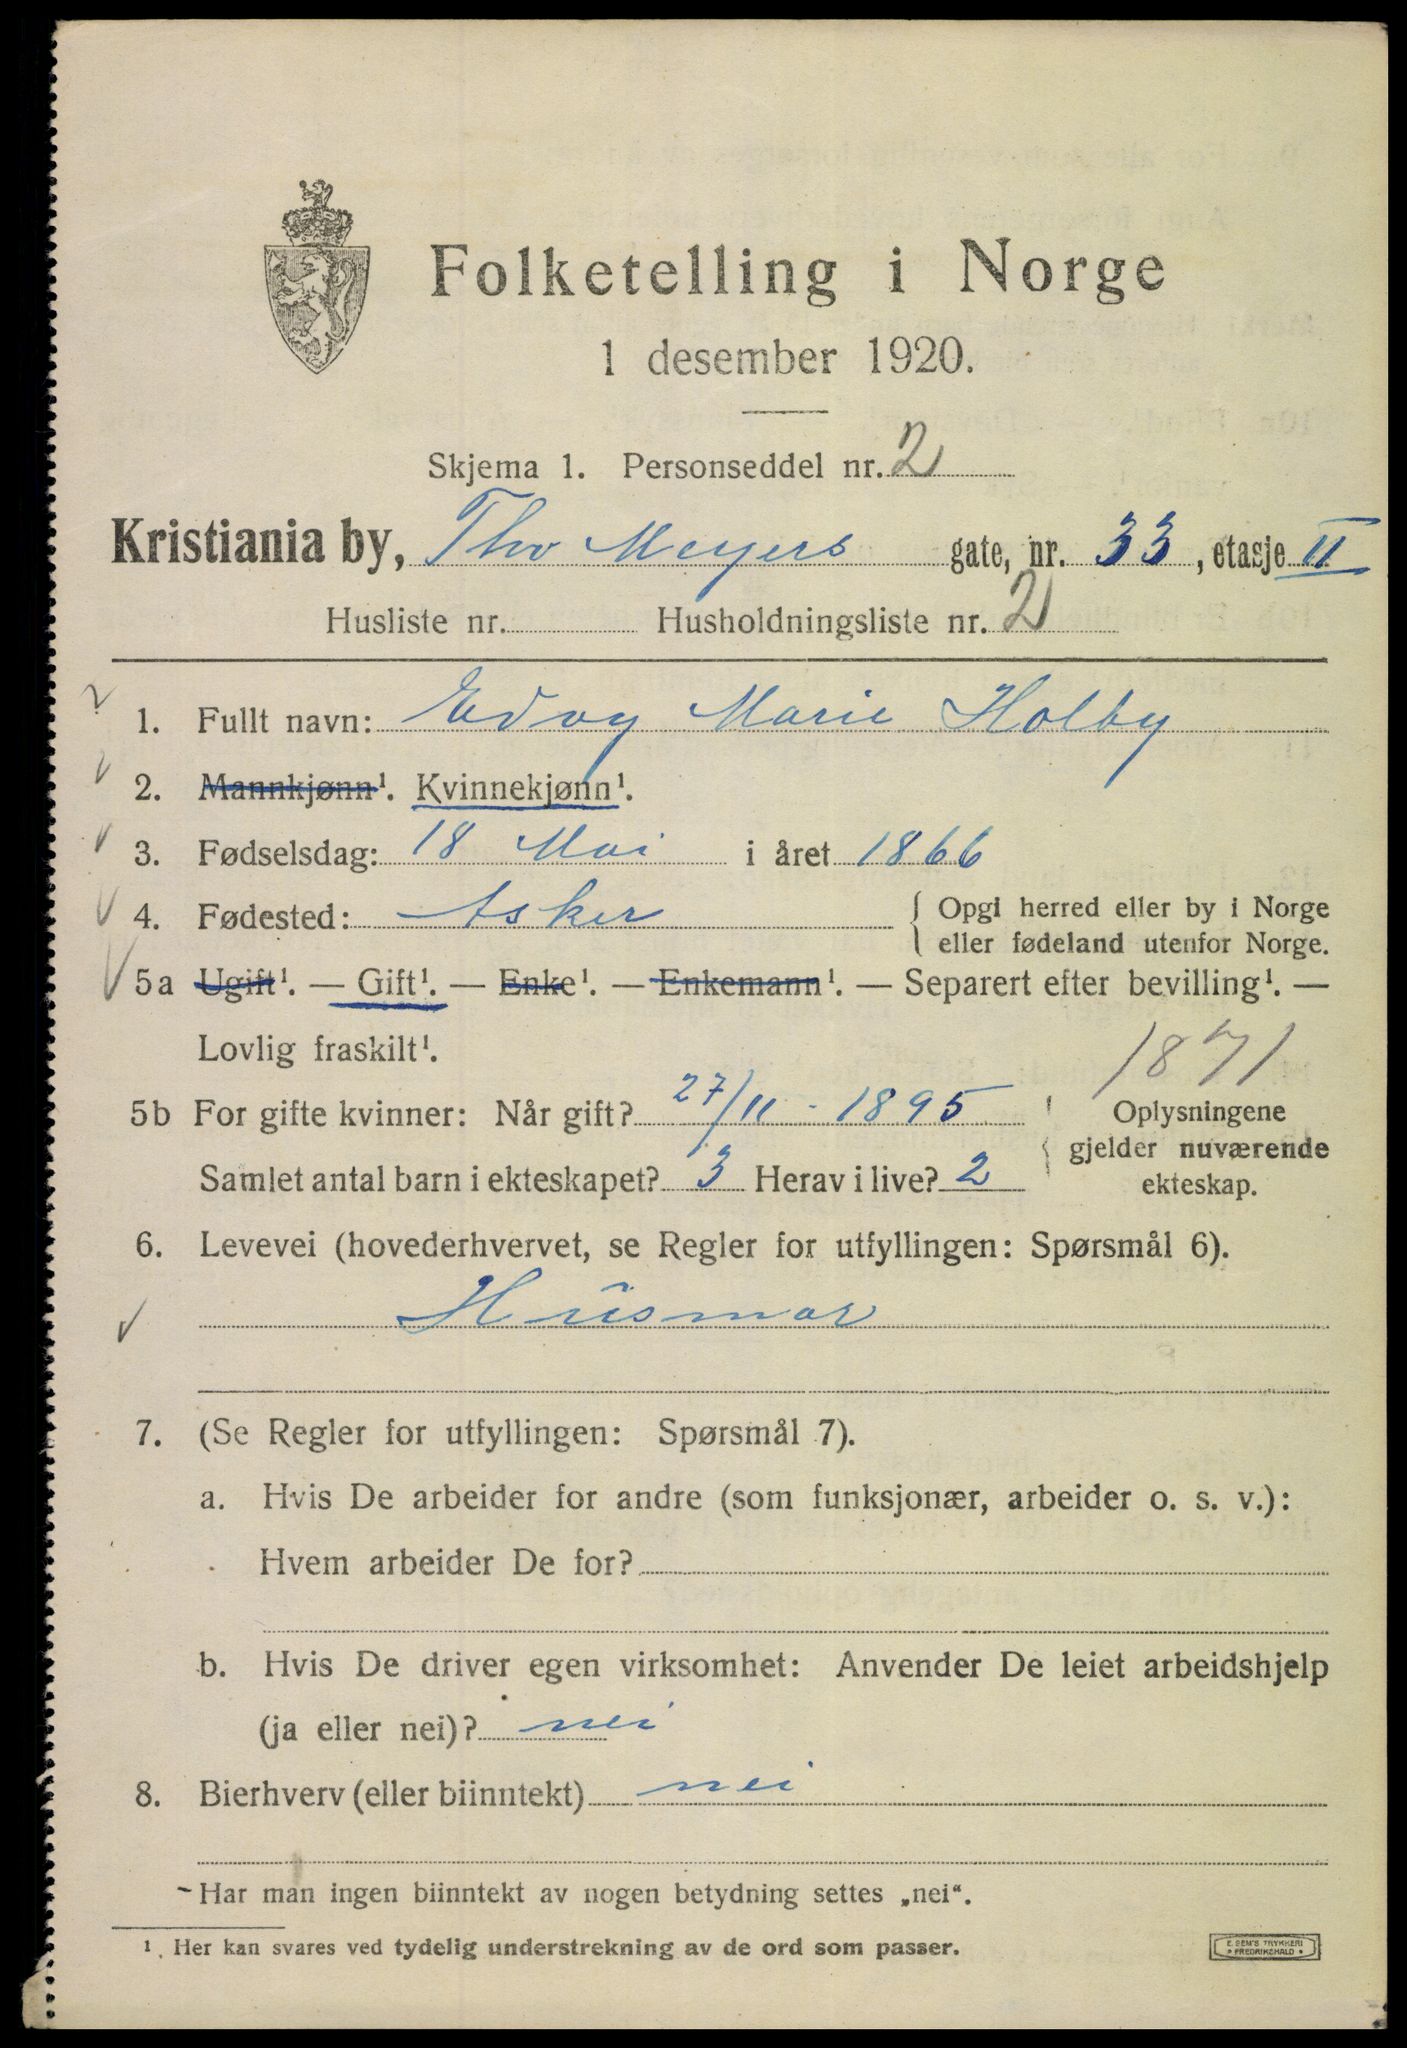 Folketelling i Norge
1 desember 1920.
Skjema 1. Personseddel nr. 2
Kristiania by, Thv Meyers gate, nr. 33, etasje II
Husliste nr. Husholdningsliste nr. 2
1. Fullt navn: Edvy Marie Holby
2. Mannkjønn¹. Kvinnekjønn¹.
3. Fødselsdag: 18 Mai i året 1866
4. Fødested: Asker { Opgi herred eller by i Norge
eller fødeland utenfor Norge.
5a Ugift¹. — Gift¹. — Enke¹. — Enkemann¹. — Separert efter bevilling¹. —
Lovlig fraskilt¹.
1871
5b For gifte kvinner: Når gift? 27/11 - 1895 { Oplysningene
gjelder nuværende
Samlet antal barn i ekteskapet? 3 Herav i live? 2 ekteskap.
6. Levevei (hovederhvervet, se Regler for utfyllingen: Spørsmål 6).
Husmor
7. (Se Regler for utfyllingen: Spørsmål 7).
a. Hvis De arbeider for andre (som funksjonær, arbeider o. s. v.):
Hvem arbeider De for?
b. Hvis De driver egen virksomhet: Anvender De leiet arbeidshjelp
(ja eller nei)? nei
8. Bierhverv (eller biinntekt) nei
Har man ingen biinntekt av nogen betydning settes „nei“.
¹. Her kan svares ved tydelig understrekning av de ord som passer.
E. SEM'S TRYKKERI
FREDRIKSHALD